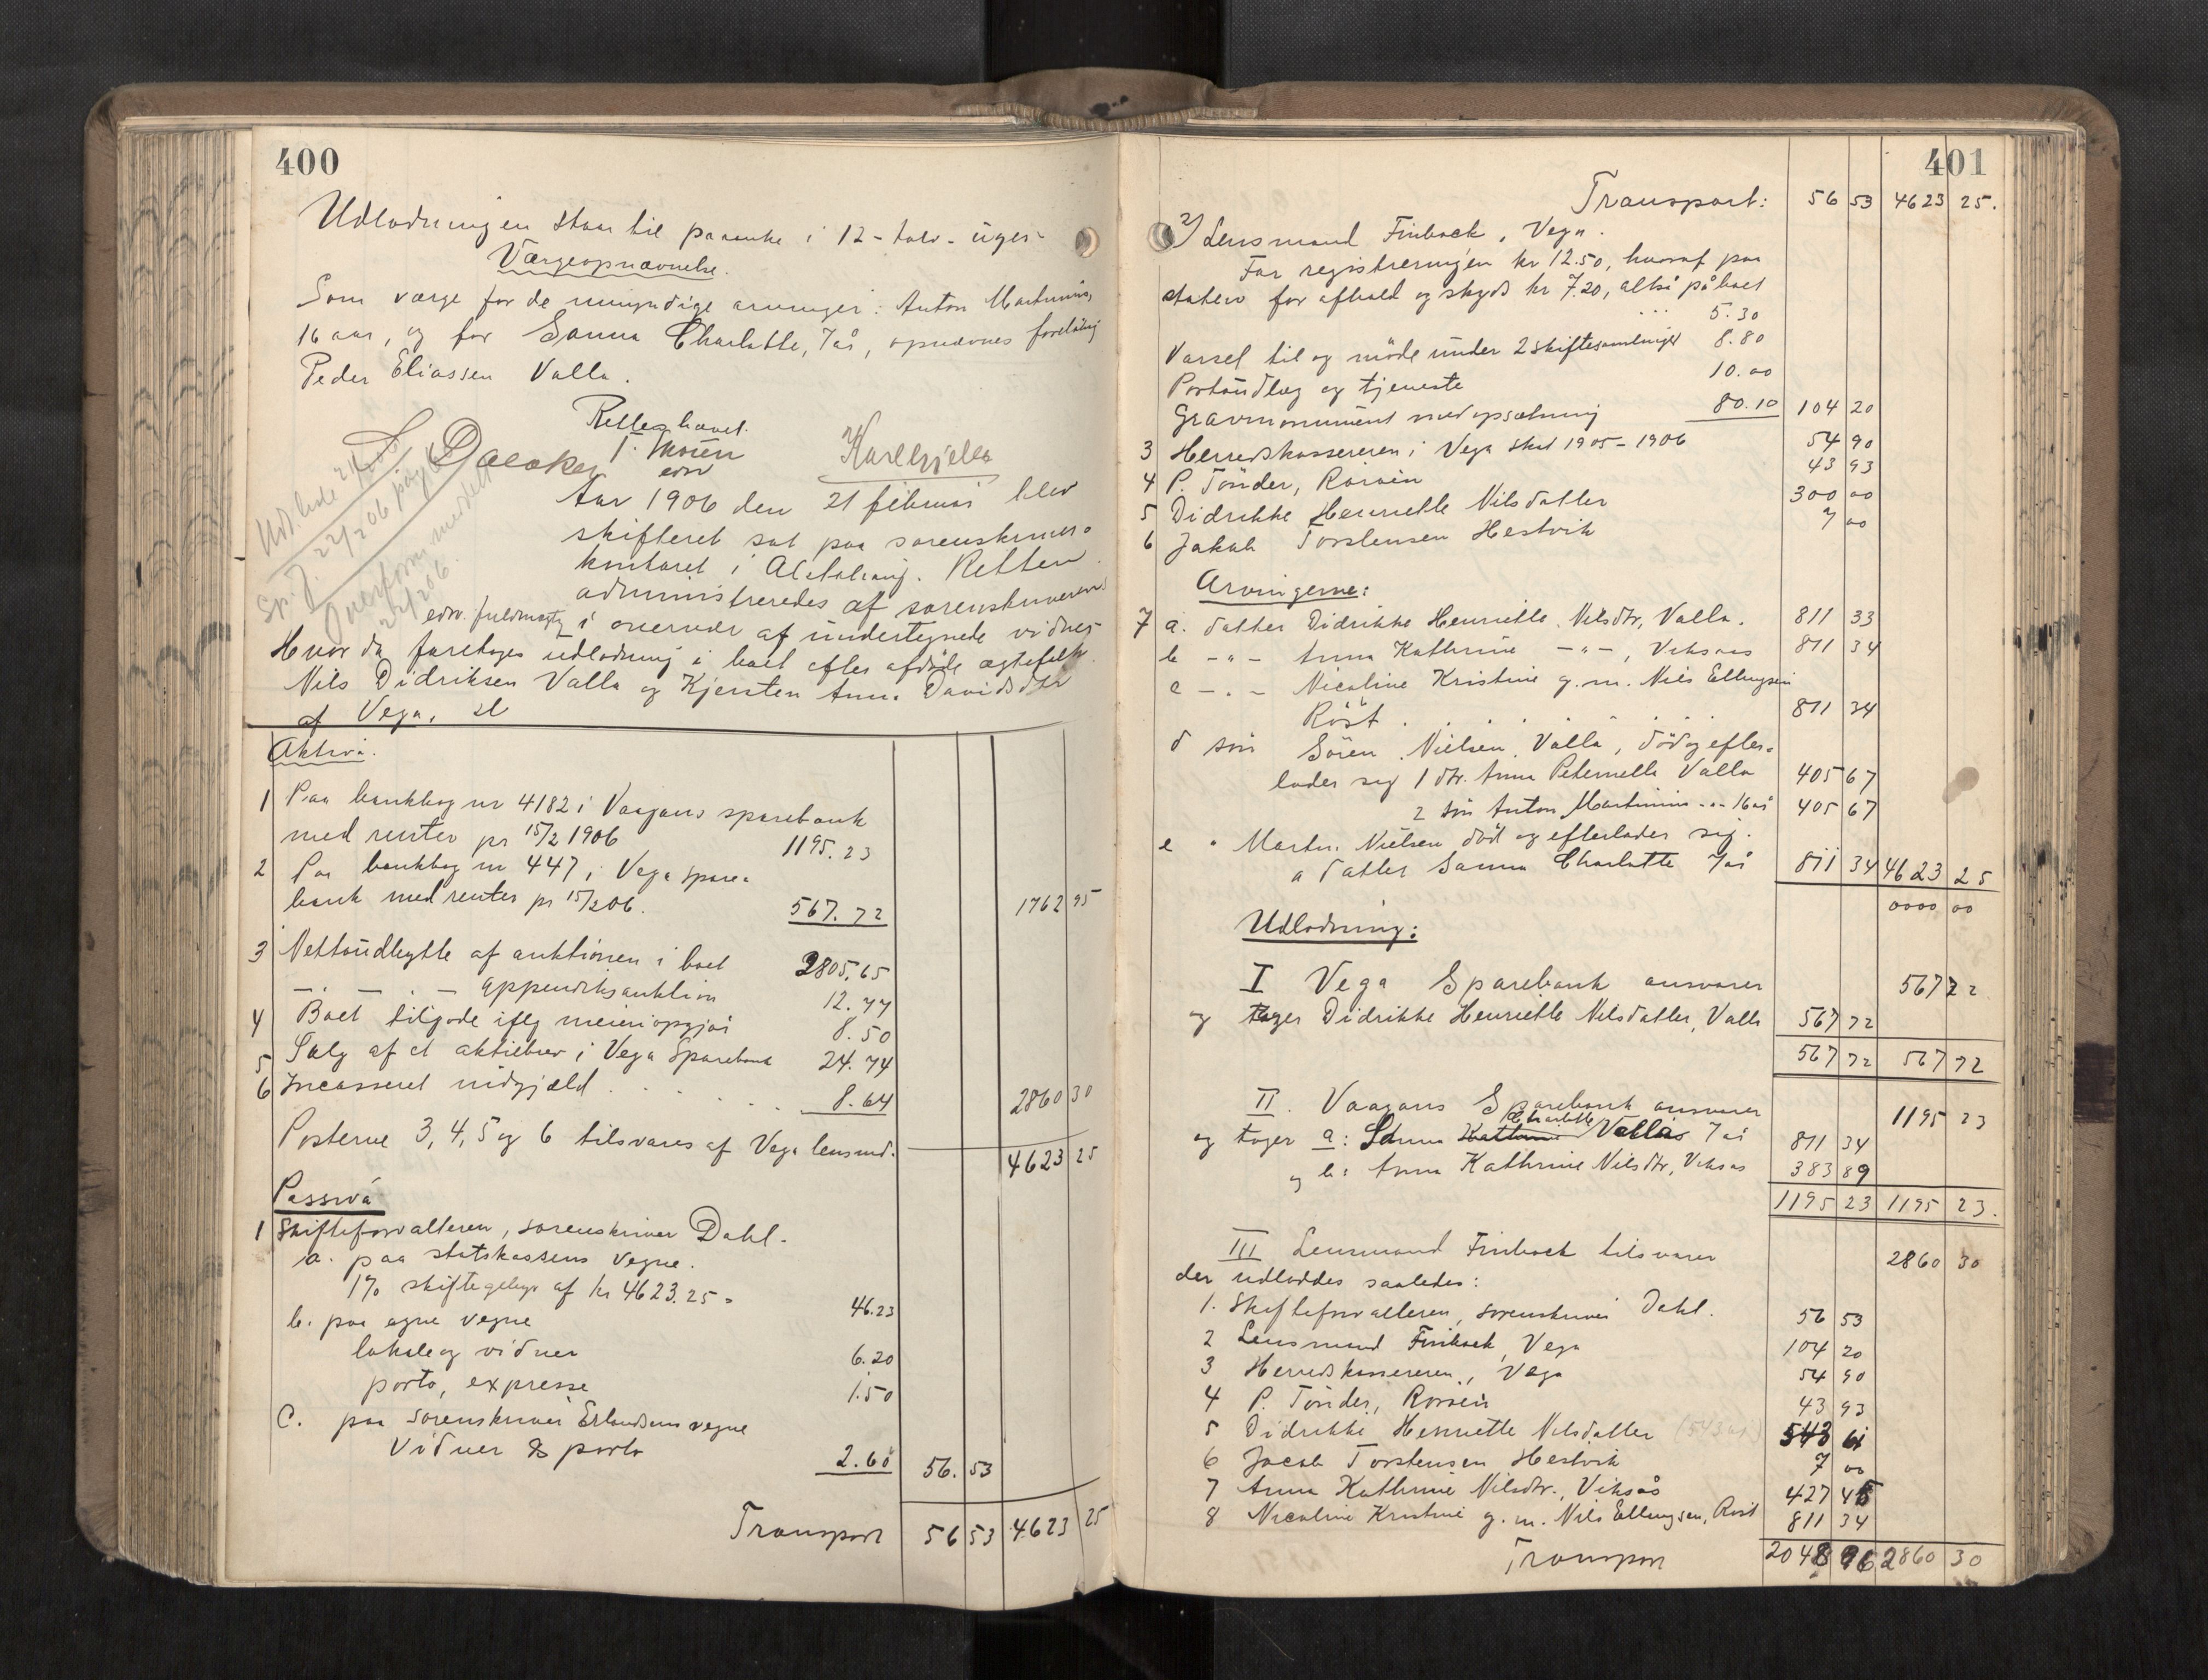 400
Udlodningen staar til paaanke i 12 - tolv - uger -
Værgeopnævnelse.
Som værge for de umyndige arvinger: Anton Martinius,
16 aar, og for Sanna Charlotte, 7 år, opnævnes foreløbig
Peder Eliassen Valla.
Retten hævet.
T. Moen
edsv
Aar 1906 den 21 februar blev
skifteret sat paa sorenskriver-
kontoret i Alstahaug. Retten
administreredes af sorenskriverens
edsv. fuldmægtig i overvær af undertegnede vidner
Hvor da foretoges udlodning i boet efter afdøde ægtefolk
Nils Didriksen Valla og Kjersten Anna Davidsdtr
af Vega.
Aktiva.
1 Paa bankbog nr 4182 i Vaagans sparebank
med renter pr 15/2 1906 1195.23
2 Paa bankbog nr 447 i Vega spare-
bank med renter pr 15/2 06. 567.72 1762 95
3 Nettoudbytte af auktionen i boet 2805.65
— . — . — appendiksauktion 12.77
4 Boet tilgode iflg meieriopgjør 8.50
5 Salg af et aktiebrev i Vega Sparebank 24.74
6 Incasseret udgjæld . . . . . 8.64 2860 30
Posterne 3, 4, 5 og 6 tilsvares af Vega lensmd. 4623 25
Passiva
1 Skifteforvalteren, sorenskriver Dahl.
a. paa statskassens vegne.
1% skiftegebyr af kr 4623.25 = 46.23
b. paa egne vegne
lokale og vidner 6.20
porto, expresse 1.50
C. paa sorenskriver Erlandsens vegne
Vidner & porto 2.60 56. 53
Transport 56 53 4623 25
401
Transport: 56 53 4623 25.
2) Lensmand Finbock, Vega.
For registreringen kr 12.50, hvoraf paa
staten for afhold og skyds kr 7.20, altså på boet
... 5.30
Varsel til og møde under 2 skiftesamlinger 8.80
Portoudlæg og tjeneste 10.00
Gravmonument med opsætning 80.10 104 20
3 Herredskassereren i Vega skat 1905 - 1906 54 90
4 P. Tønder, Rørøen 43 93
5 Didrikke Henriette Nilsdatter 300 00
6 Jakob Torstensen Hestvik 7 00
Arvingerne:
7 a. datter Didrikke Henriette Nilsdtr, Valla. 811 33
b — " — Anna Kathrine — " —, Viksaas 811 34
c — . — Nicoline Kristine g. m. Nils Ellingsen
Röst . . . . . . . 811 34
d søn Sören Nielsen Valla, död og efter-
lader sig 1 dtr. Anna Peternelle Valla 405 67
2 søn Anton Martinius - " - 16 år 405 67
e " Martin Nielsen død og efterlader sig.
a datter Sanna Charlotte 7 år 811 34 4623 25
0000 00
Udlodning:
I Vega Sparebank ansvarer 567 72
og tager Didrikke Henriette Nilsdatter, Valla 567 72
567 72 567 72
II. Vaagans Sparebank ansvarer 1195 23
og tager a: Sanna Charlotte Vallas 7 år 811 34
og b: Anna Kathrine Nilsdtr, Viksaas 383 89
1195 23 1195 23.
III Lensmand Finbock tilsvarer 2860 30
der udloddes saaledes:
1. Skifteforvalteren, sorenskriver Dahl. 56 53
2 Lensmand Finbock, Vega 104 20
3 Herredskassereren, Vega 54 90
4 P. Tønder, Rørøen 43 93
5 Didrikke Henriette Nilsdatter (543 61) 543 61
6 Jacob Torstensen Hestvik 7 00
7 Anna Kathrine Nilsdtr., Viksås 427 45
8 Nicoline Kristine g. m. Nils Ellingsen, Röst 811 34
Transport 2048 96 2860 30